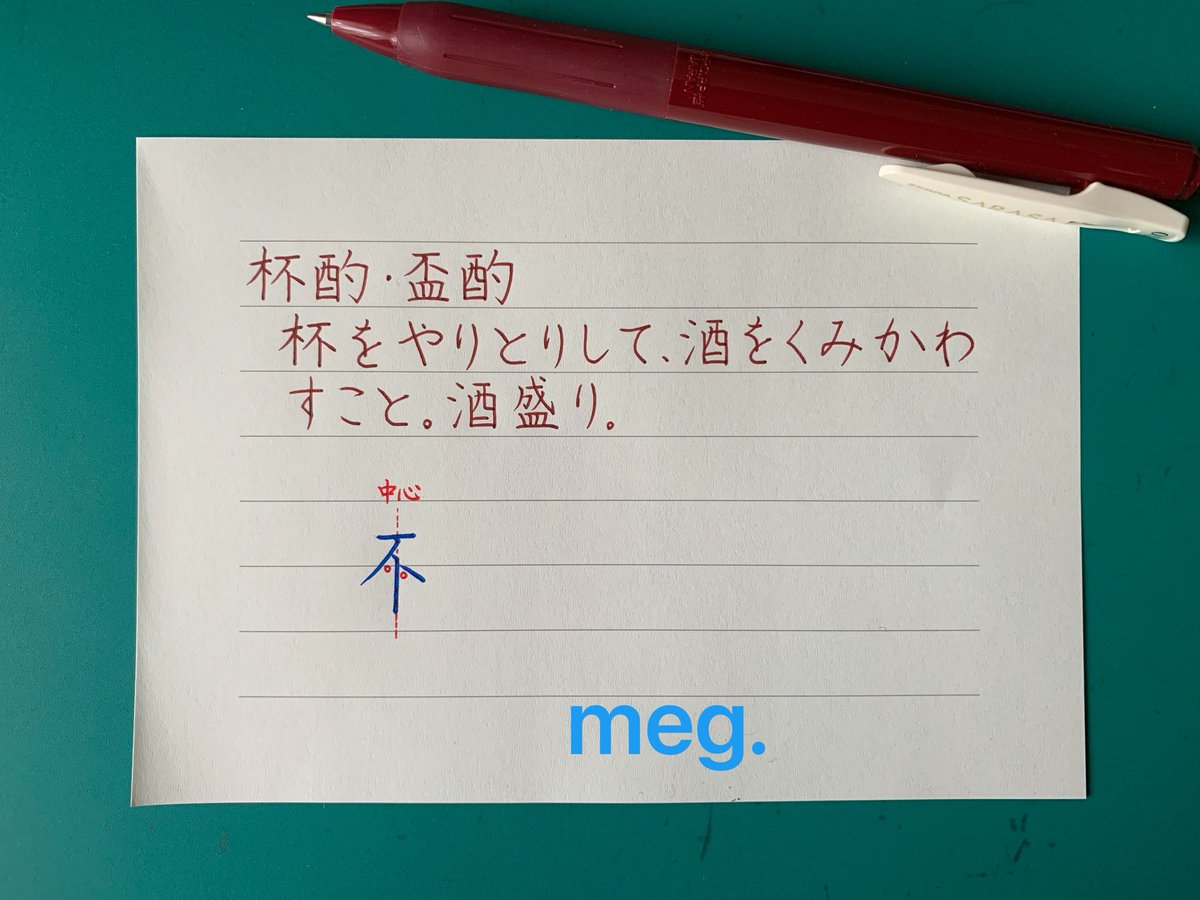 杯酌・盃酌
杯をやりとりして、酒をくみかわ
すこと。酒盛り。
中心
不
meg.
SARASA